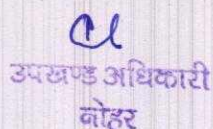 उपखण्ड अधिकारी
नोहर